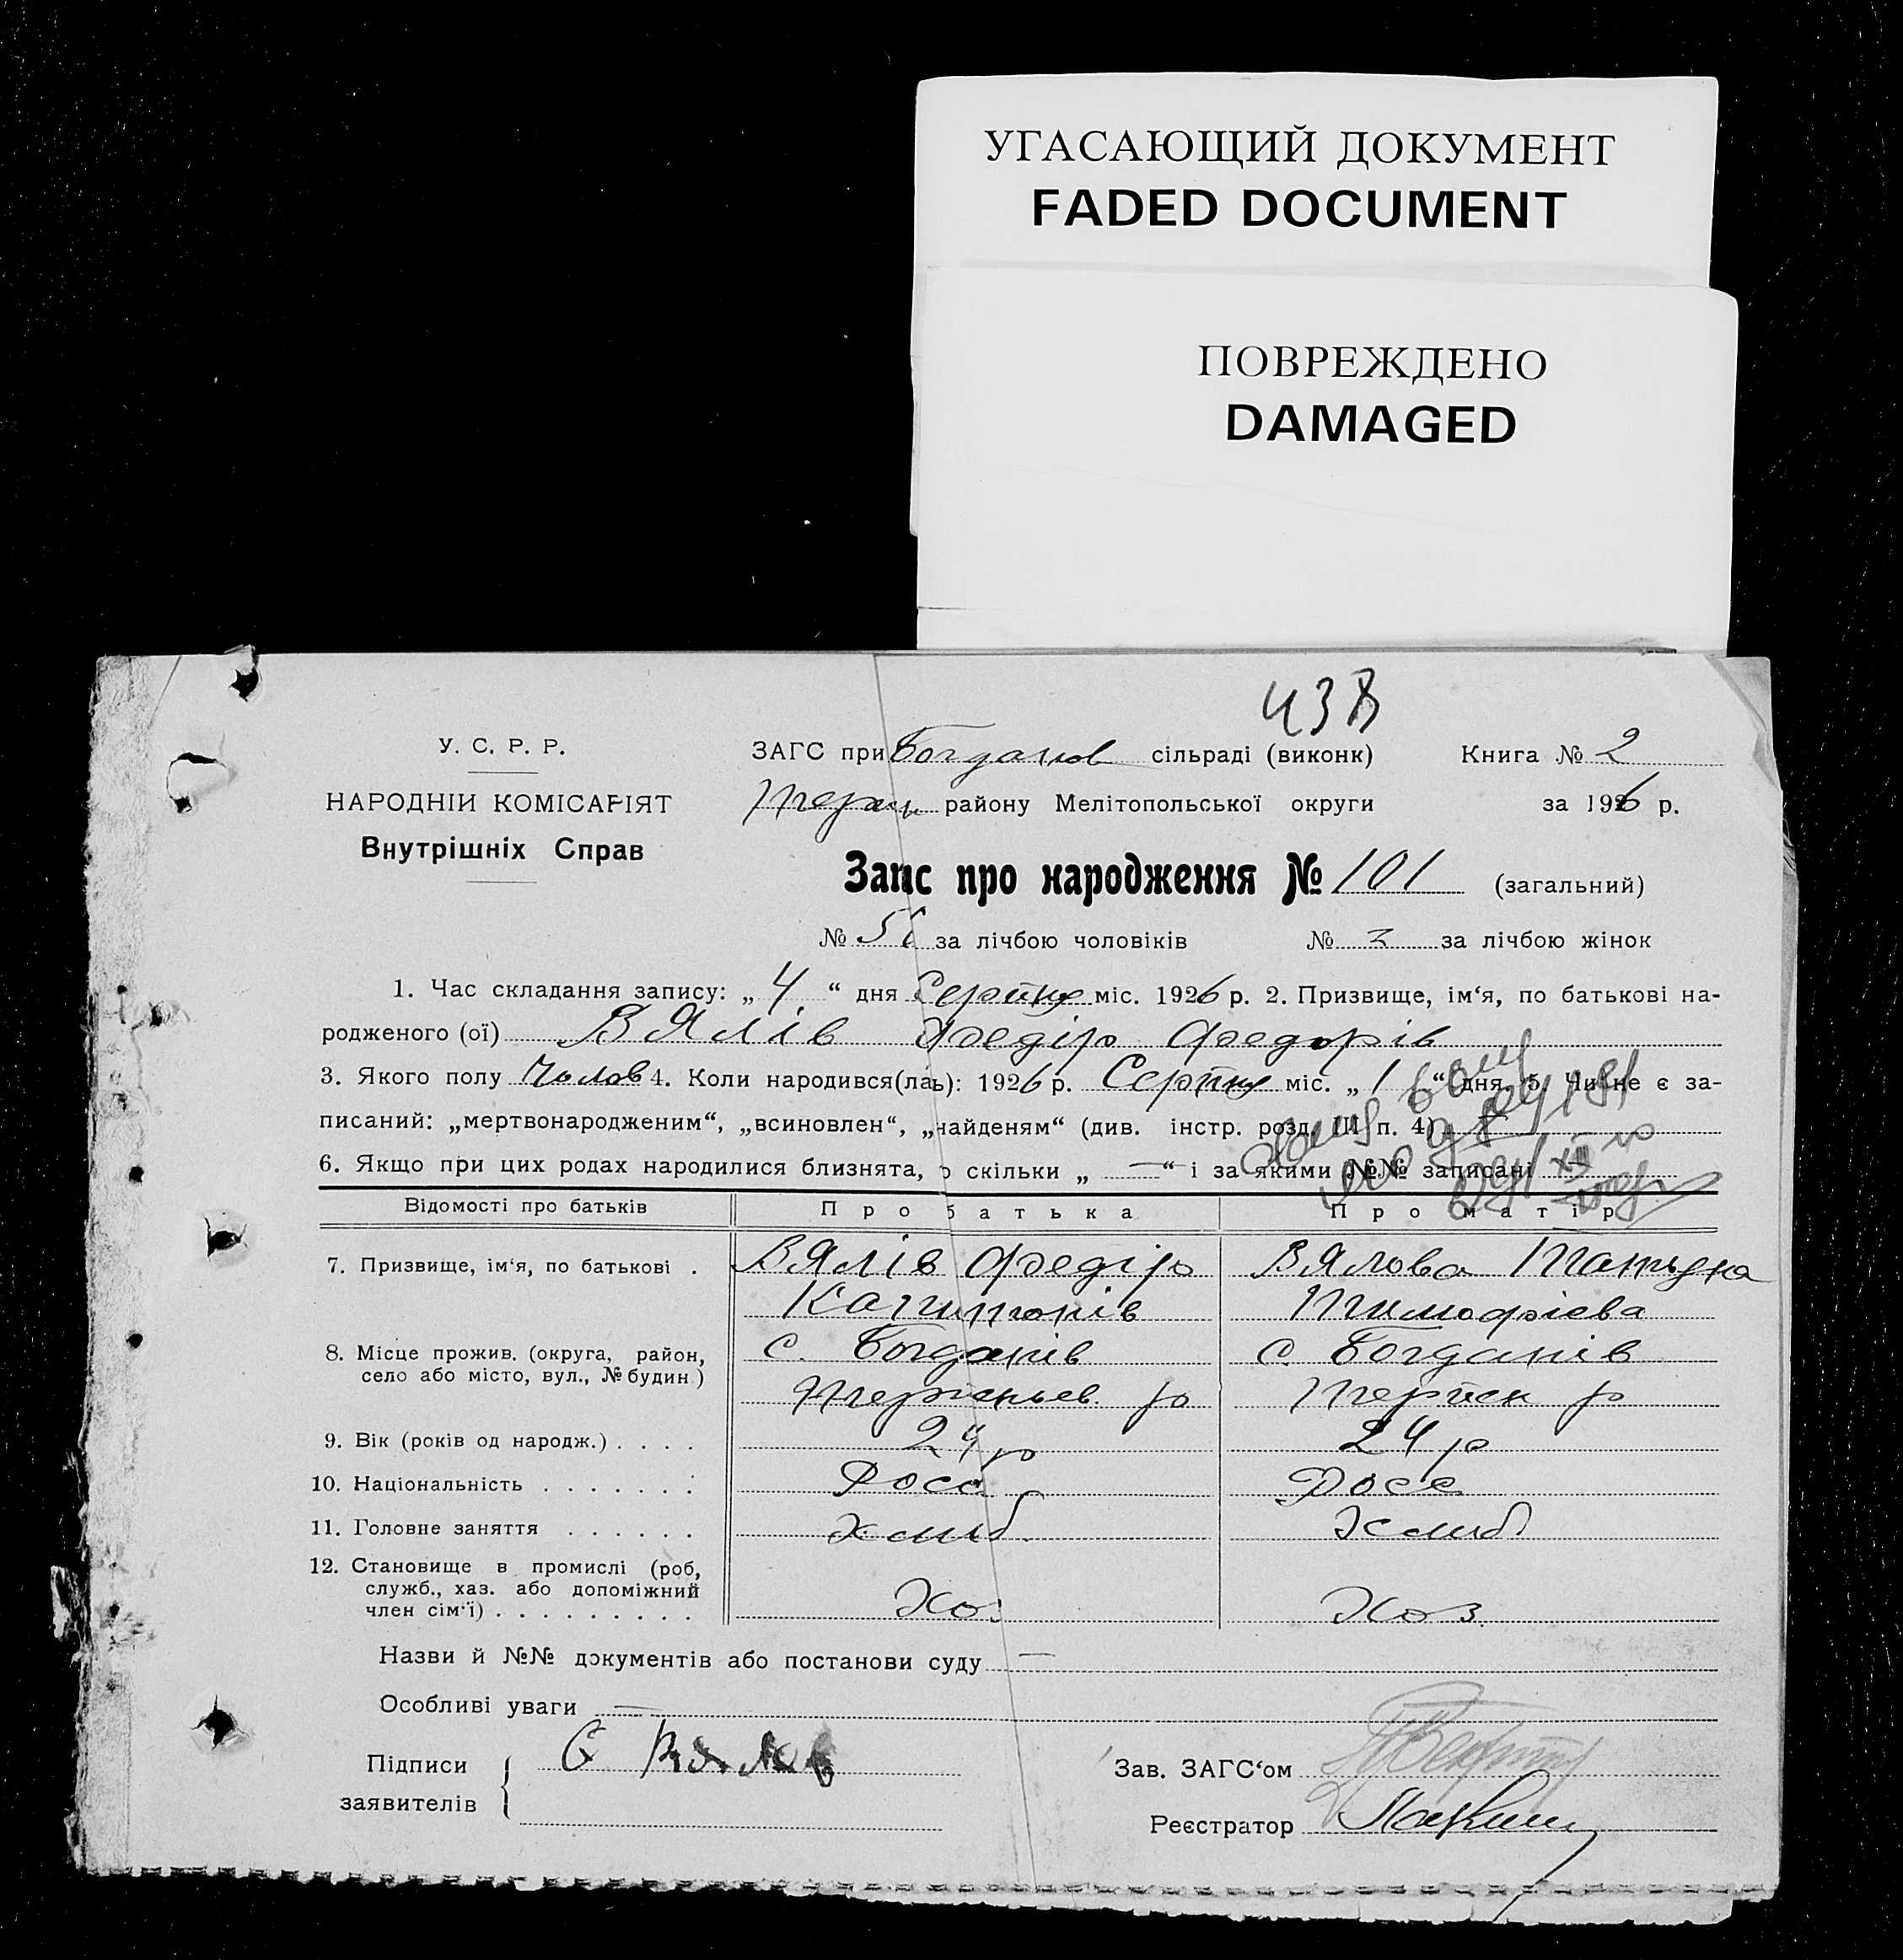 УГАСАЮЩИЙ ДОКУМЕНТ
FADED DOCUMENT
ПОВРЕЖДЕНО
DAMAGED
У. С. Р. Р.
НАРОДНІИ КОМІСАРІЯТ
Внутрішніх Справ
ЗАГС при Богданов сільраді (виконк) Книга № 2
району Мелітопольської округи за 1926 р.
Запис про народження № 101 (загальний)
№ за лічбою чоловіків № за лічбою жінок
1. Час складання запису: „ 4 “ дня Серпня міс. 1926 р. 2. Призвище, ім‘я, по батькові на-
родженого (ої) Вялів Федір Федорів
3. Якого полу Чолов 4. Коли народився(лаь): 1926 р. Серпня міс. „ 1 “ дня 5. Чи не є за-
писаний: „мертвонародженим“, „всиновлен“, „найденям“ (див. інстр. розд. III п. 4)
6. Якщо при цих родах народилися близнята, о скільки „ — “ і за якими №№ записані
Відомості про батьків Про батька Про матір
7. Призвище, ім‘я, по батькові . Вялів Федір Вялова Татьяна
Капитонів Тимофієва
8. Місце прожив. (округа, район, с. Богданів с. Богданів
село або місто, вул., № будин.) р р
9. Вік (років од народж.) . . . . 24 р 24 р
10. Національність . . . . . . . Росс Росс
11. Головне заняття . . . . . . Хліб Хліб
12. Становище в промислі (роб,
служб., хаз. або допоміжний
член сім‘ї) . . . . . . . . . Хоз Хоз.
Назви й №№ документів або постанови суду —
Особливі уваги —
Підписи Вялов Зав. ЗАГС‘ом
заявителів
Реєстратор